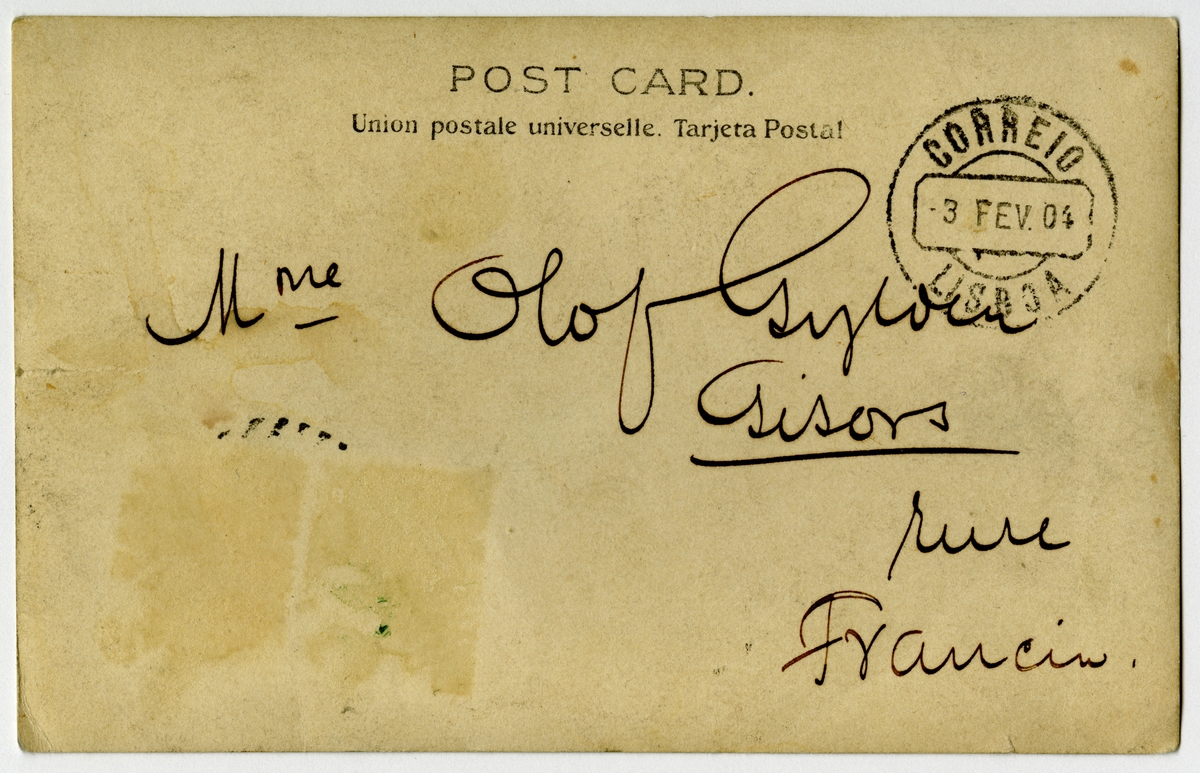 POST CARD.
Union postale universelle. Tarjeta Postal
CORREIO
-3 FEV. 04
LISBOA
Mme Olof Gylden
Gisors
Eure
Francin.